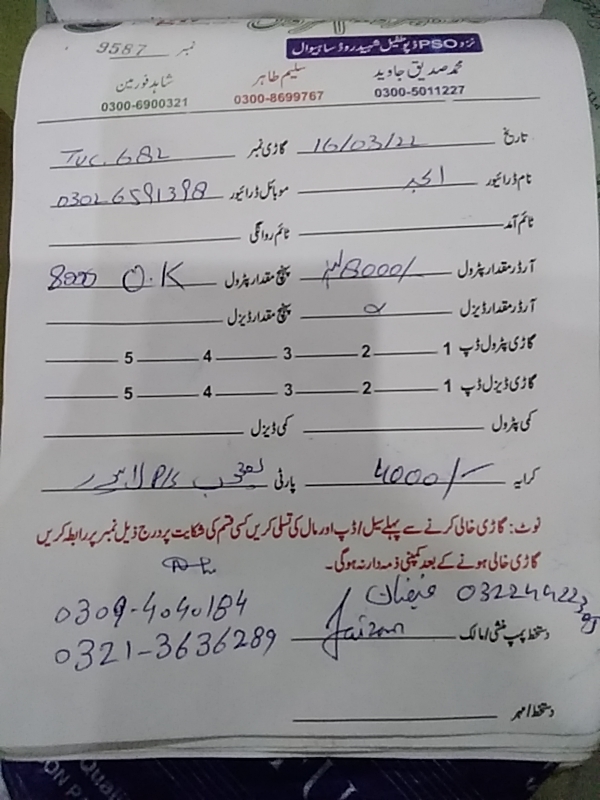 نمبر 9587
نزد PSO ڈپو طفیل شہید روڈ ساہیوال
محمد صدیق جاوید سلیم طاہر شاہد فورمین
0300-5011227 0300-8699767 0300-6900321
تاریخ 16/03/22 گاڑی نمبر TUC. 682
نام ڈرائیور اکبر موبائل ڈرائیور 03026591398
ٹائم آمد ٹائم روانگی
آرڈر مقدار پٹرول 8000/ پہنچ مقدار پٹرول 8000 O.K
آرڈر مقدار ڈیزل پہنچ مقدار ڈیزل
گاڑی پٹرول ڈپ 1 2 3 4 5
گاڑی ڈیزل ڈپ 1 2 3 4 5
کمی پٹرول کمی ڈیزل
کرایہ 4000/- پارٹی P/S لاہور
نوٹ: گاڑی خالی کرنے سے پہلے سیل/ڈپ اور مال کی تسلی کریں کسی قسم کی شکایت پر درج ذیل نمبر پر رابطہ کریں
گاڑی خالی ہونے کے بعد کمپنی ذمہ دار نہ ہوگی۔
فیضان
0309-4040184
دستخط پمپ منشی/مالک Faizan 0321-3636289
دستخط/مہر